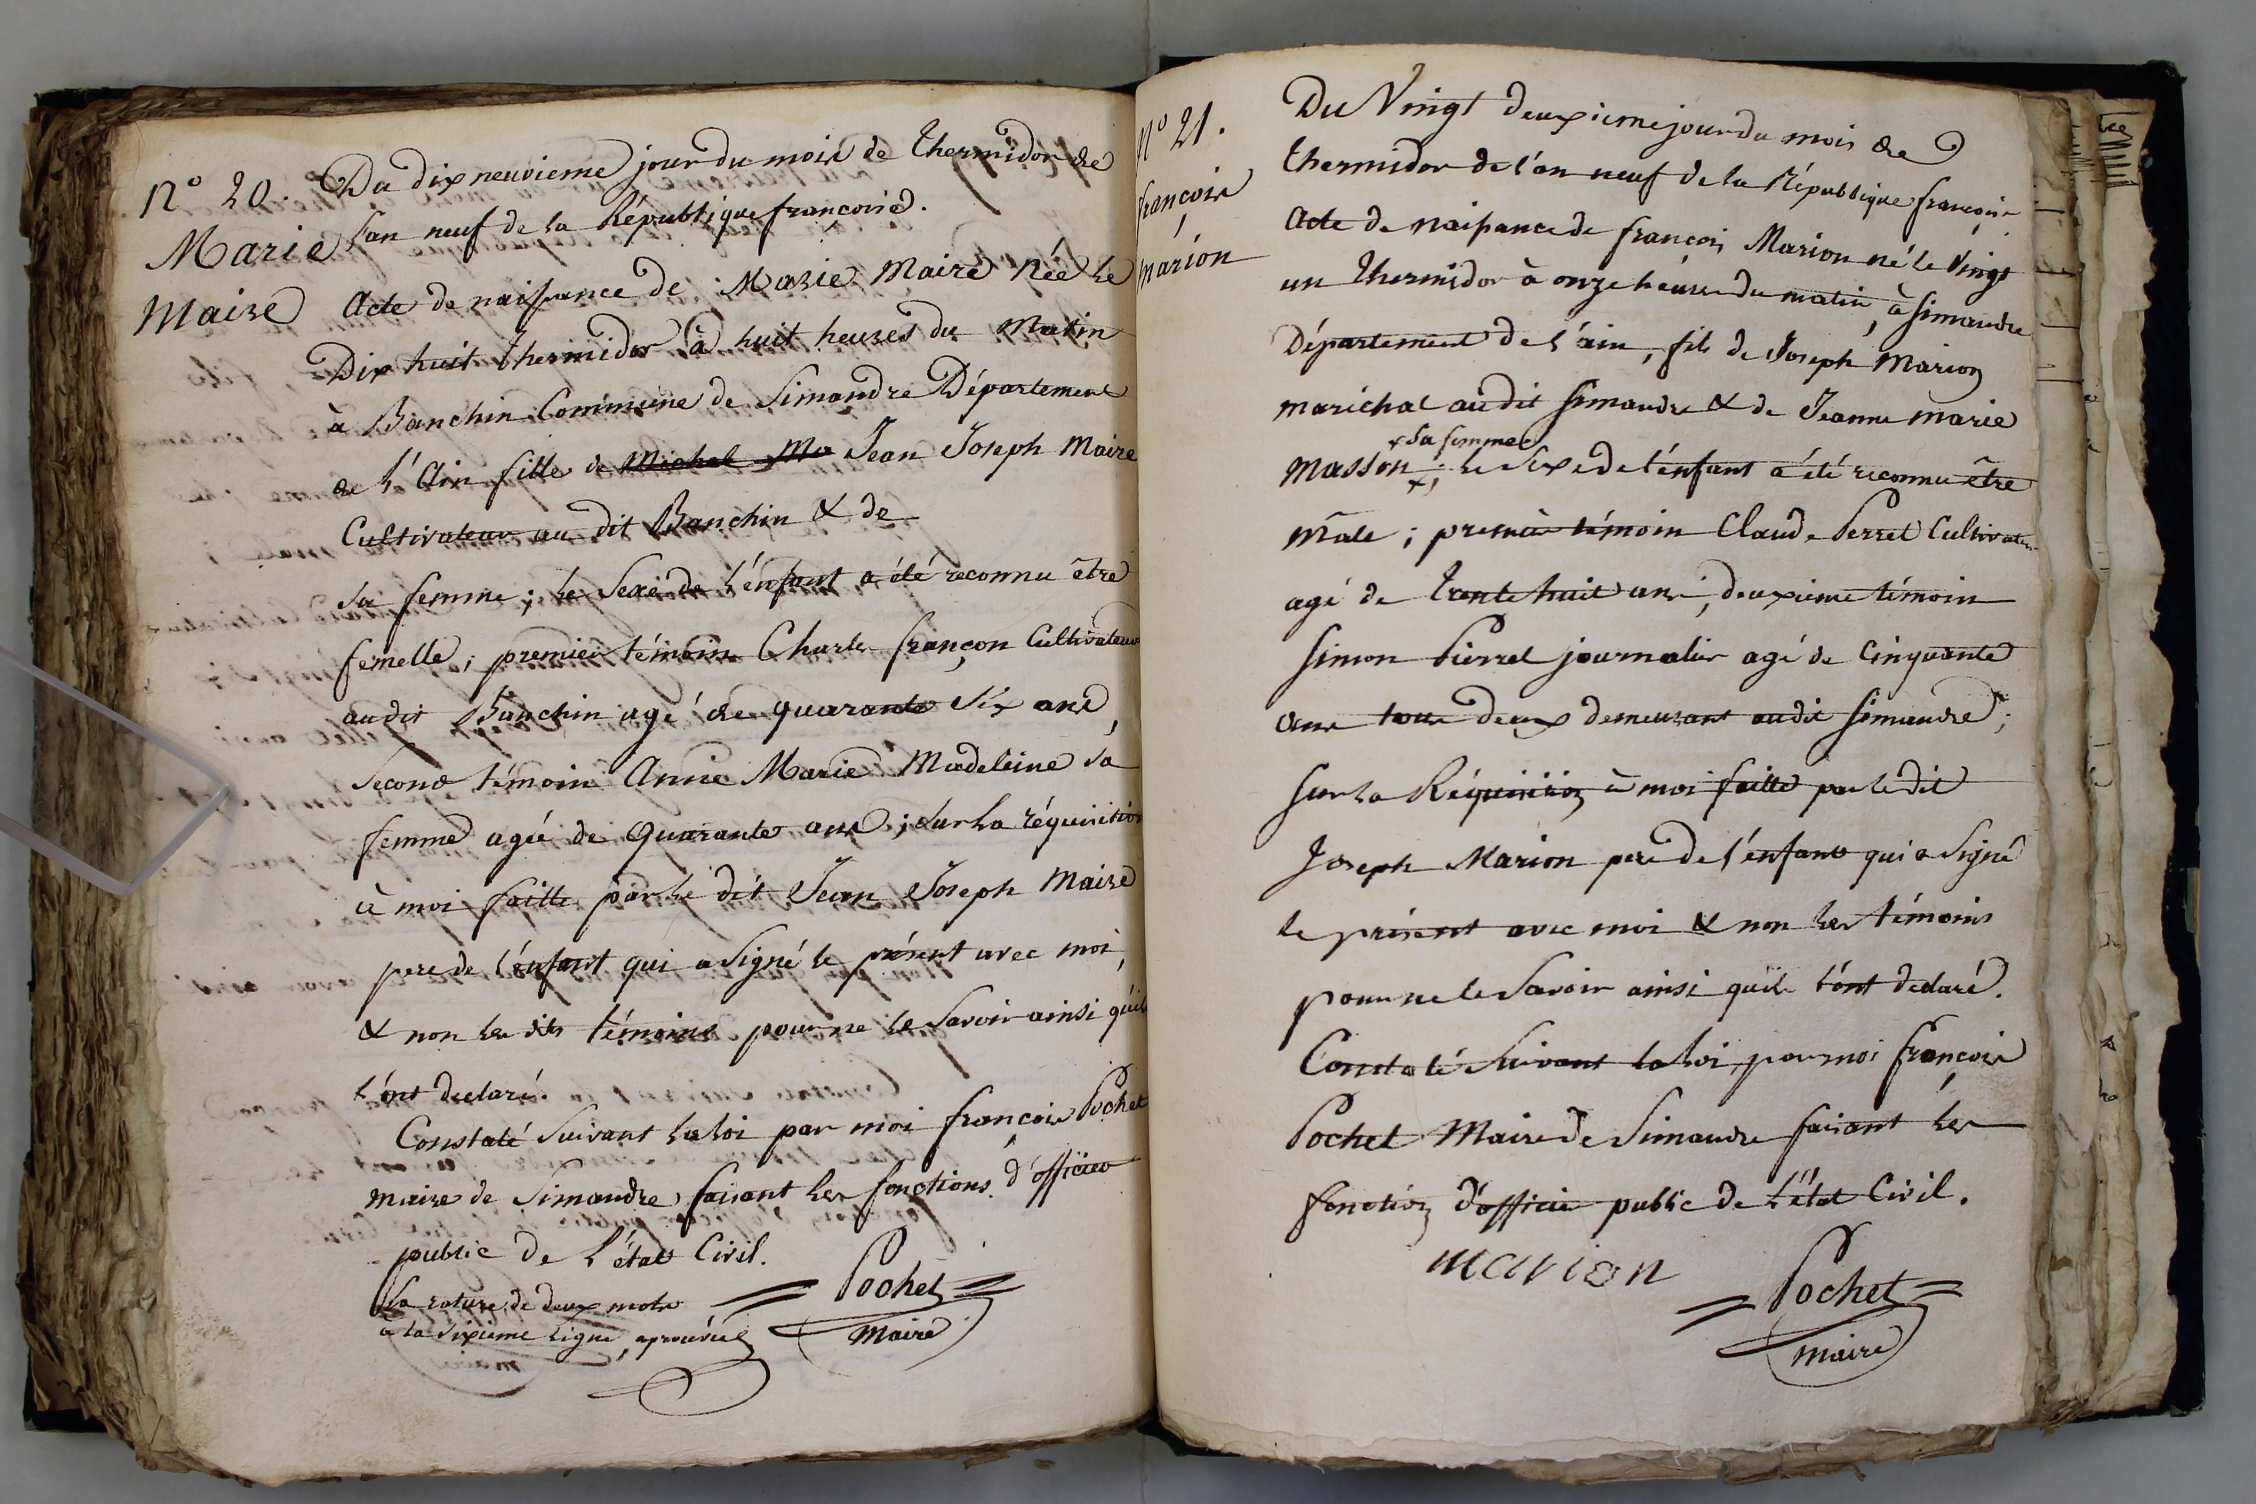 N° 20.
Marie
Maire
Du dix neuvieme jour du mois de thermidor de
l'an neuf de la République françoise.
Acte de naissance de Marie Maire née le
Dix huit thermidor à huit heures du Matin
à Banchin Commune de Simandre Département
de l'Ain fille de Michel Ma Jean Joseph Maire
Cultivateur au dit Banchin & de
sa femme ; le Sexe de l'énfant a été reconnu être
femelle ; premier témoin Charles françon Cultivateur
audit Banchin agé de quarante six ans,
second témoin Anne Marie Madeleine sa
femme agée de quarante ans ; sur la réquisition
à moi faitte par le dit Jean Joseph Maire
pere de l'énfant qui a signé le présent avec moi,
& non les dits témoins pour ne le savoir ainsi qu'ils
l'ont declaré.
Constaté suivant la loi par moi françois Pochet
maire de Simandre faisant les fonctions d'officier
public de l'état Civil.
la rature de deux mots
à la sixieme ligne, aprouvée
Pochet
maire
N° 21.
françois
marion
Du Vingt deuxieme jour du mois de
thermidor de l'an neuf de la République françoise
Acte de naissance de françois Marion né le Vingt
un thermidor à onze héures du matin, à simandre
Département de l'ain, fils de Joseph Marion
marichal audit simandre & de Jeanne marie
x sa femme
Masson x ; le Sexe de l'énfant a été reconnu être
mâle ; premier témoin Claude Perret Cultivateur
agé de trente huit ans ; deuxieme témoin
simon Pierrel journalier agé de cinquante
ans tous deux demeurant audit simandre ;
sur la Réquisition à moi faitte par le dit
Joseph Marion pere de l'énfant qui a signé
le présent avec moi & non les témoins
pour ne le savoir ainsi qu'ils l'ont declaré.
Constaté suivant la loi, par moi françois
Pochet Maire de Simandre faisant les
fonction d'officier public de l'état Civil.
marion
Pochet
maire